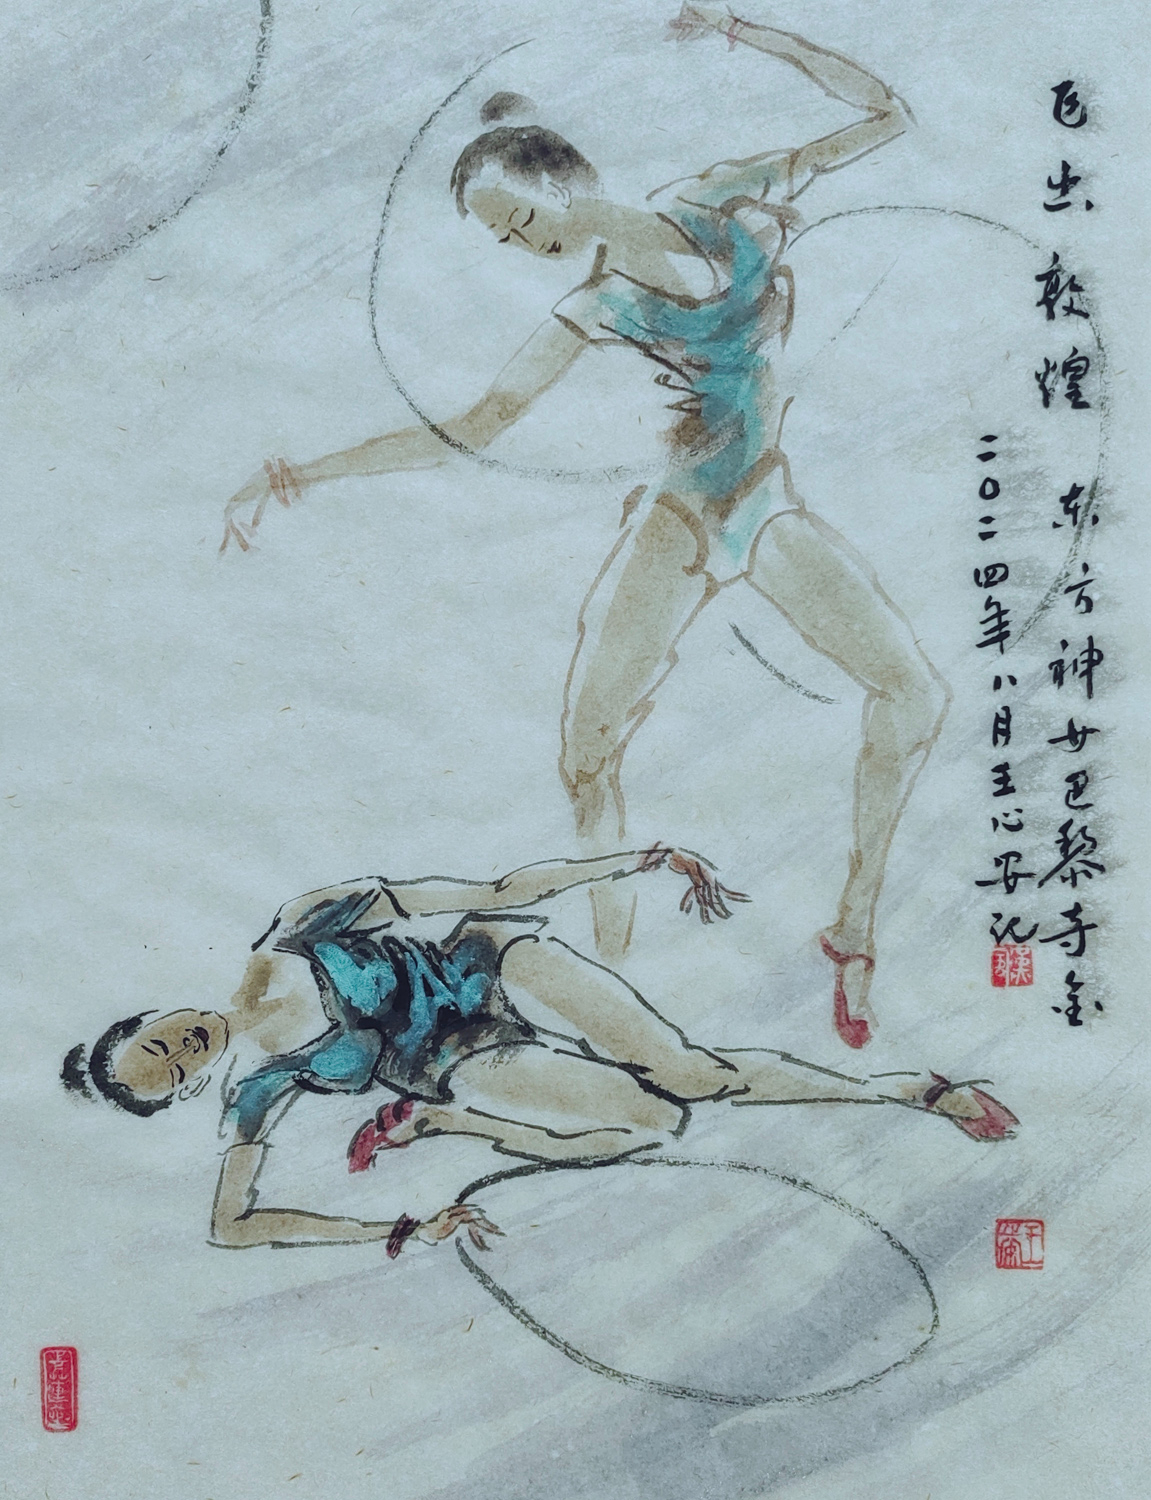 飞出敦煌 东方神女巴黎夺金
二〇二四年八月王心安记